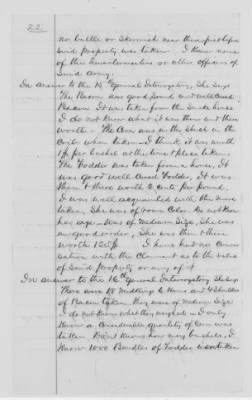 22
no battle or Skirmish near there just before
said Property was taken. I knew none
of the Quartermasters or other officers of
Said Army.
In answer to the 15th general Interrogatory, She Says
The Bacon was good sound and well Cured
Bacon It was taken from the Smoke house
I do not know what it was then and there
worth. The Corn was in the Shuck in the
Crib when taken I think it was worth
per bushel at the time & place taken,
The Fodder was taken from a house, It
was good well Cured Fodder, It was
then & there worth 2 cents per pound,
I was well acquainted with the mare
taken, She was of Color, do not know
her age was of medium Size, She was
in good order, She was then & there
worth 125$ I have had no Conver
sation with the Claimant as to the value
of Said Property or any of it
In answer to the 16th general Interrogatory She says
There were 18 Middlings 6 Hams and 4 Shoulders
of Bacon taken, they were of medium Size
I do not know what they weighed. I only
know a Considerable quantity of Corn was
taken Don't know how many bushels, I
Know 1000 Bundles of Fodder was taken